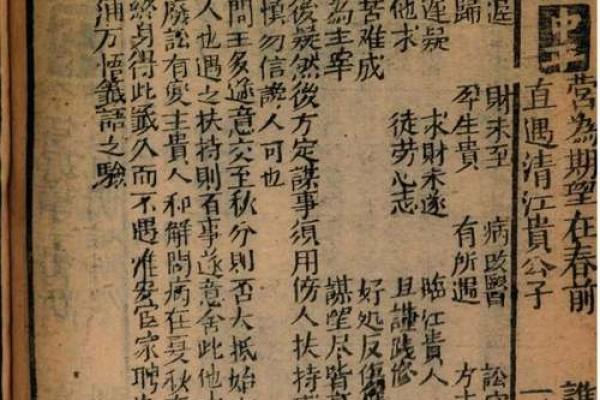 中平
營為期望在春前 誰
直遇清江貴公子 一
遅 財未至 病改醫 訟
歸 孕生貴 有所遇 方
遲疑 求財未遂 臨江貴人
他求 徒勞心志 且謹踐修
苦難成 好処反傷
為主宰 謀望尽皆
後疑然後方定謀事須用傍人扶持
慎勿信讒人可也
問主多遂意交至秋分則否大抵始
人也遇之扶持則百事遂意舍此他
廢訟有变主貴人和解問病在夏秋
終身得此籤久而不遇惟安官家聘
浦方悟籤語之驗